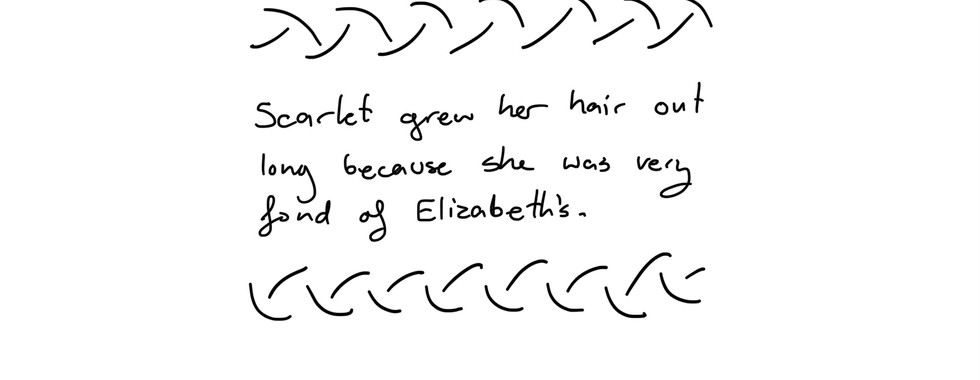 Scarlet grew her hair out
long because she was very
fond of Elizabeth's.